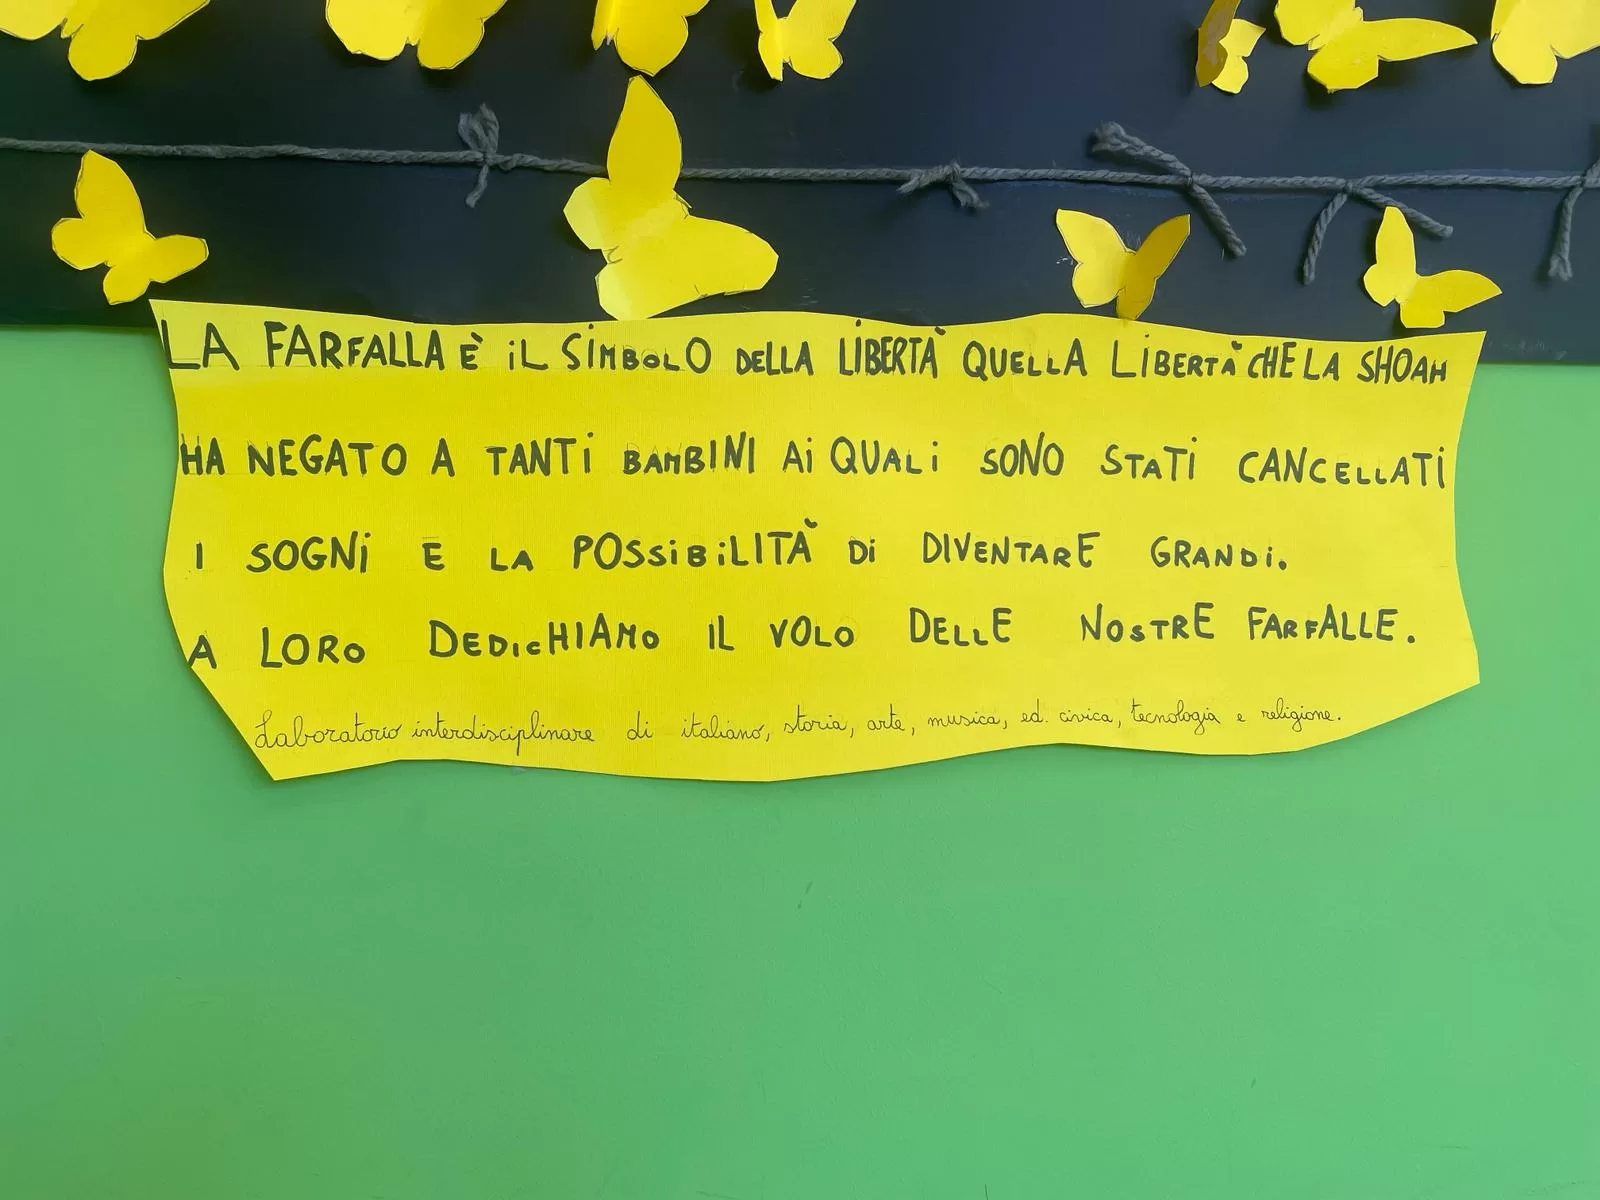 LA FARFALLA È iL SiMBOLO DELLA LIBERTÀ QUELLA LIBERTÀ CHE LA SHOAH
HA NEGATO A TANTi BAMBINI Ai QUALi SONO STATi CANCELLATi
I SOGNi E LA POSSiBiLITÀ Di DIVENTARE GRANDi.
A LORO DEDICHIAMO IL VOLO DELLE NOSTRE FARFALLE.
Laboratorio interdisciplinare di italiano, storia, arte, musica, ed. civica, tecnologia e religione.